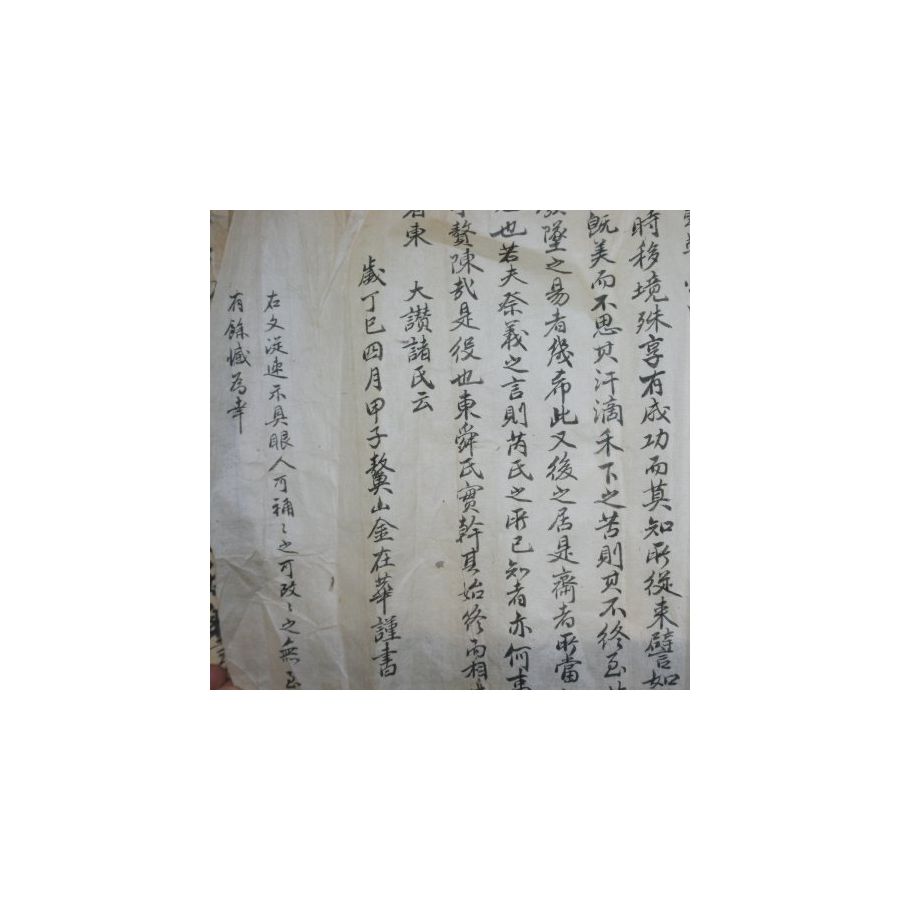 時移境殊享有成功而莫知所從來譬如
旣美而不思其汗滴禾下之苦則其不終至
墜之易者幾希此又後之居是齋者所當
也若夫祭義之言則芮氏之所已知者亦何
贅陳哉是役也東舜氏實幹其始終而相
東 大讚諸氏云
歲丁巳四月甲子鰲山金在華謹書
右文淀速示具眼人可補〻之可改〻之無至
有餘憾爲幸